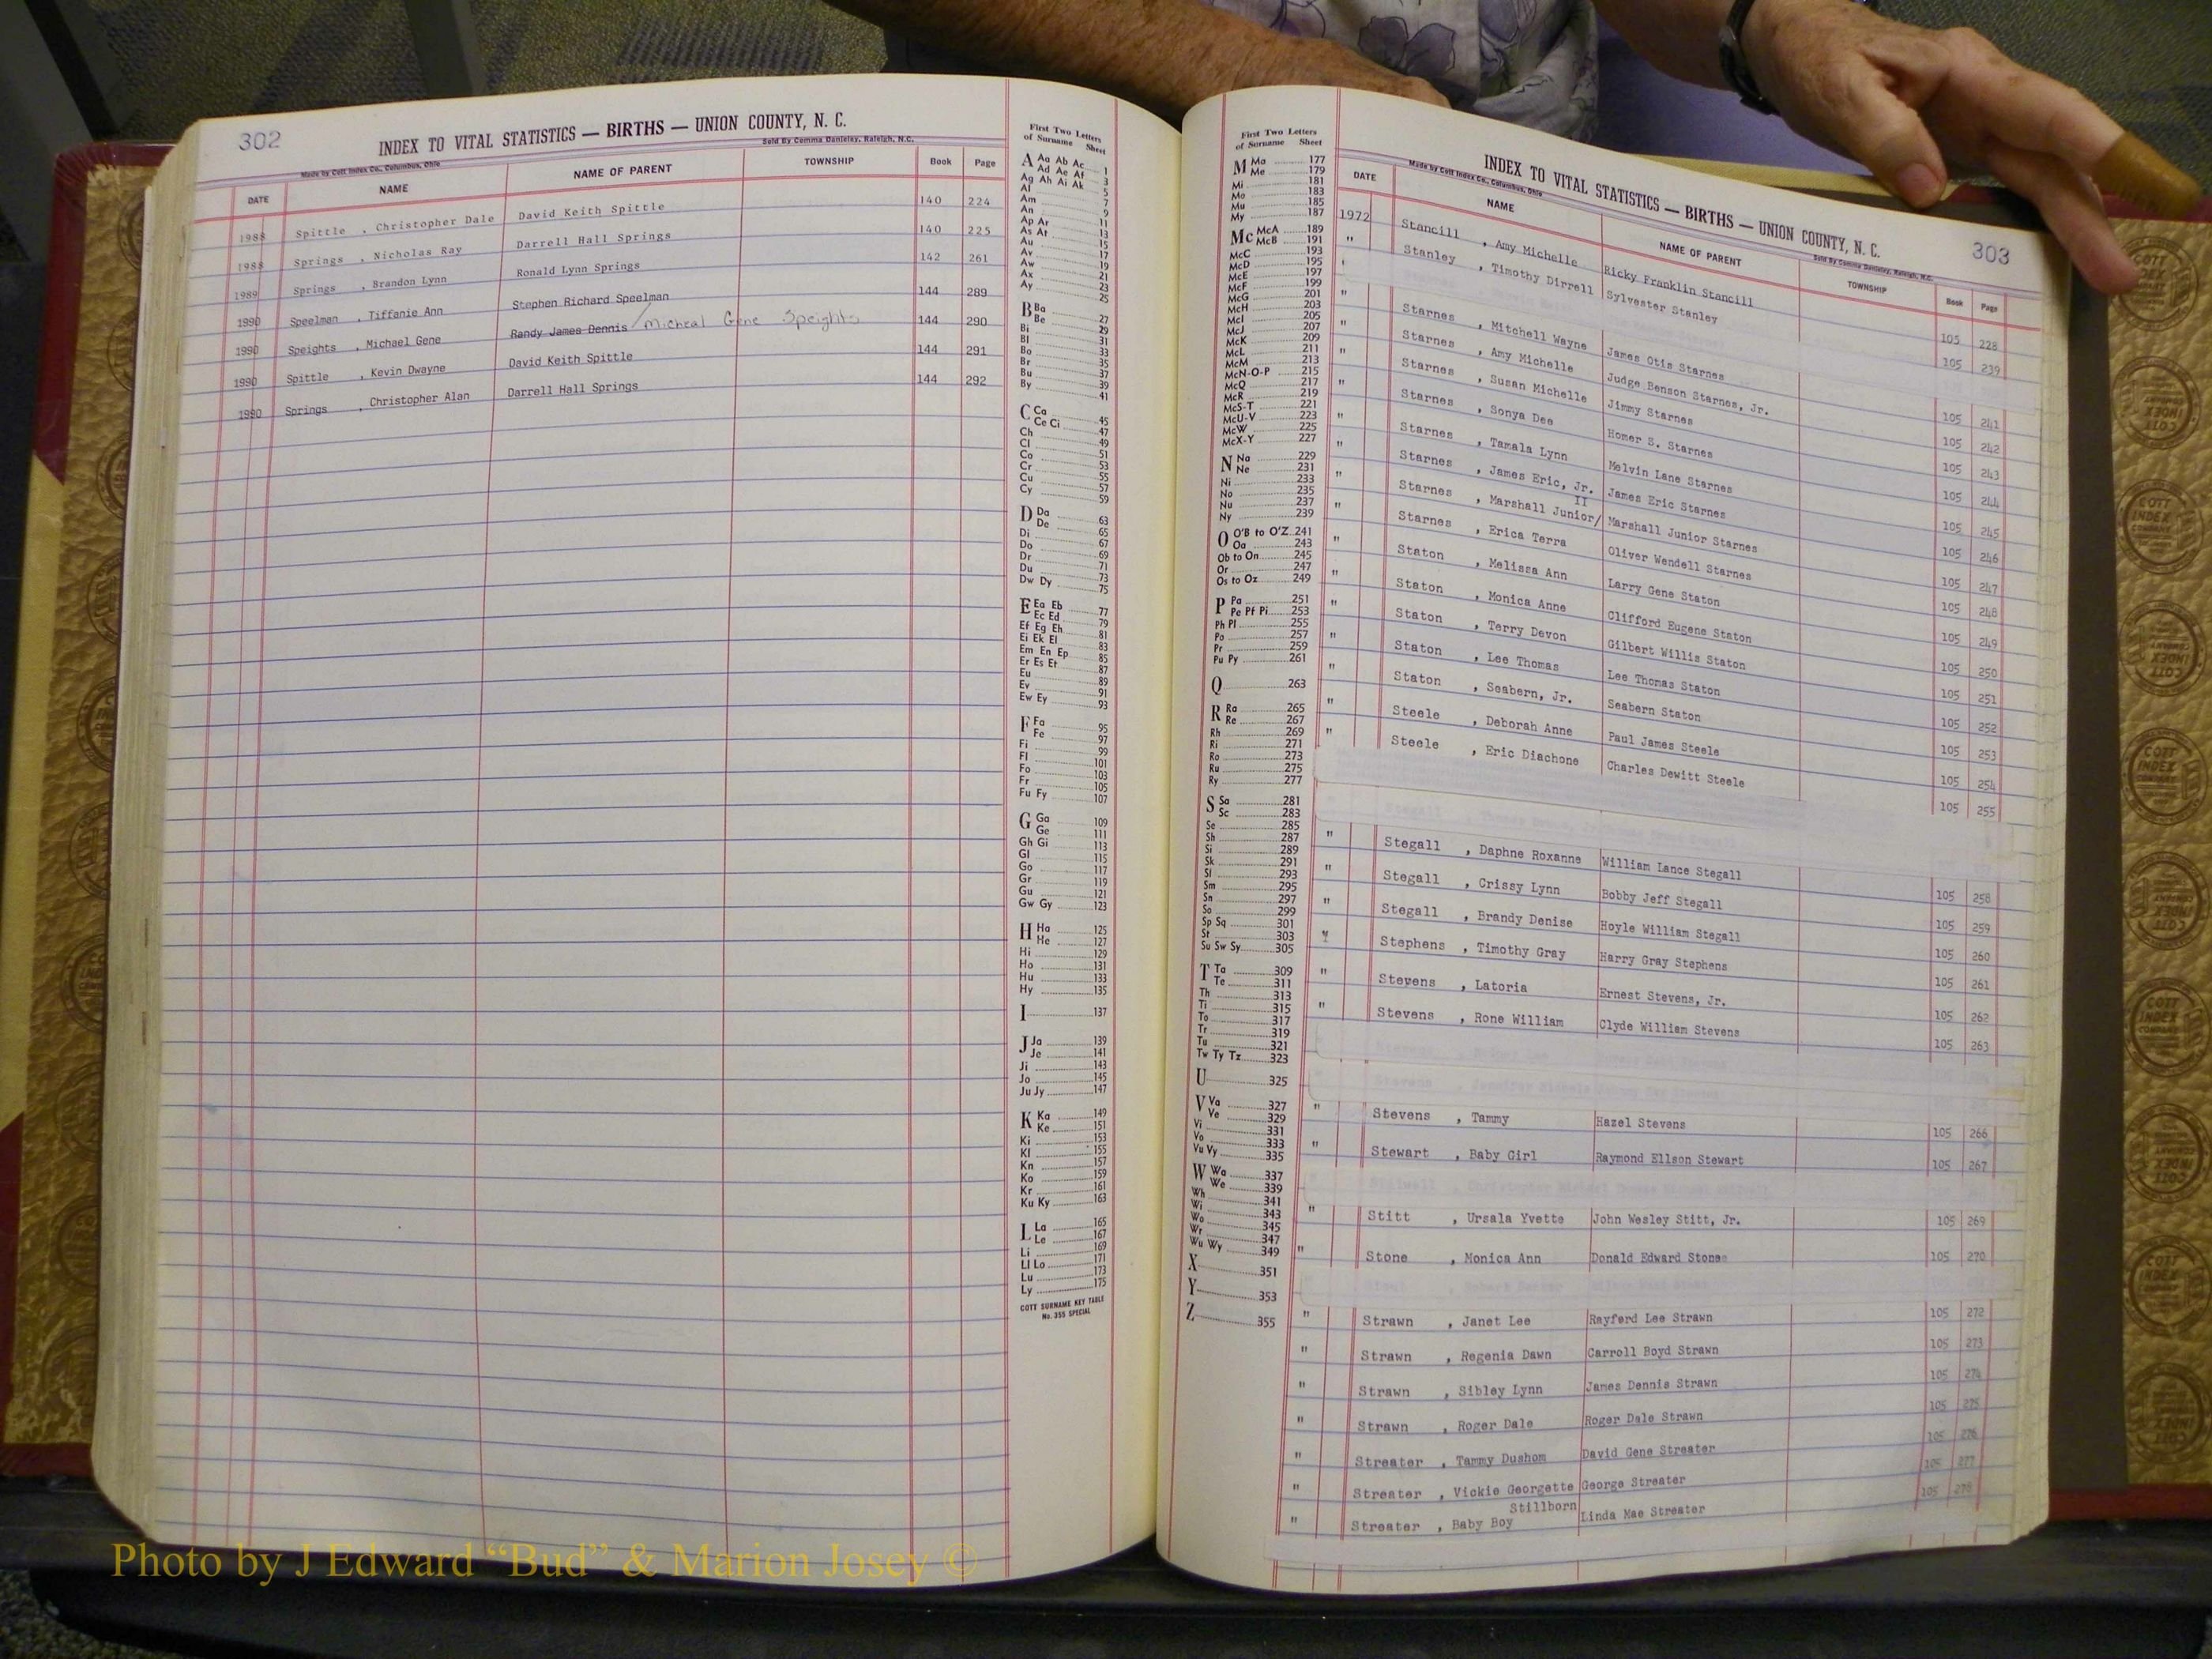 302
INDEX TO VITAL STATISTICS — BIRTHS — UNION COUNTY, N. C.
Made by Cott Index Co., Columbus, Ohio Sold By Comma Danieley, Raleigh, N.C.
DATE NAME NAME OF PARENT TOWNSHIP Book Page
1988 Spittle , Christopher Dale David Keith Spittle 140 224
1988 Springs , Nicholas Ray Darrell Hall Springs 140 225
1989 Springs , Brandon Lynn Ronald Lynn Springs 142 261
1990 Speelman , Tiffanie Ann Stephen Richard Speelman 144 289
1990 Speights , Michael Gene Randy James Dennis / Micheal Gene Speights 144 290
1990 Spittle , Kevin Dwayne David Keith Spittle 144 291
1990 Springs , Christopher Alan Darrell Hall Springs 144 292
First Two Letters
of Surname Sheet
A Aa Ab Ac 1
Ad Ae Af 3
Ag Ah Ai Ak 5
Al 7
Am 9
An 11
Ap Ar 13
As At 15
Au 17
Av 19
Aw 21
Ax 23
Ay 25
B Ba 27
Be 29
Bi 31
Bl 33
Bo 35
Br 37
Bu 39
By 41
C Ca 45
Ce Ci 47
Ch 49
Cl 51
Co 53
Cr 55
Cu 57
Cy 59
D Da 63
De 65
Di 67
Do 69
Dr 71
Du 73
Dw Dy 75
E Ea Eb 77
Ec Ed 79
Ef Eg Eh 81
Ei Ek El 83
Em En Ep 85
Er Es Et 87
Eu 89
Ev 91
Ew Ey 93
F Fa 95
Fe 97
Fi 99
Fl 101
Fo 103
Fr 105
Fu Fy 107
G Ga 109
Ge 111
Gh Gi 113
Gl 115
Go 117
Gr 119
Gu 121
Gw Gy 123
H Ha 125
He 127
Hi 129
Ho 131
Hu 133
Hy 135
I 137
J Ja 139
Je 141
Ji 143
Jo 145
Ju Jy 147
K Ka 149
Ke 151
Ki 153
Kl 155
Kn 157
Ko 159
Kr 161
Ku Ky 163
L La 165
Le 167
Li 169
Ll Lo 171
Lu 173
Ly 175
COTT SURNAME KEY TABLE
No. 355 SPECIAL
First Two Letters
of Surname Sheet
M Ma 177
Me 179
Mi 181
Mo 183
Mu 185
My 187
Mc McA 189
McB 191
McC 193
McD 195
McE 197
McF 199
McG 201
McH 203
McI 205
McJ 207
McK 209
McL 211
McM 213
McN-O-P 215
McQ 217
McR 219
McS-T 221
McU-V 223
McW 225
McX-Y 227
N Na 229
Ne 231
Ni 233
No 235
Nu 237
Ny 239
O O'B to O'Z 241
Oa 243
Ob to On 245
Or 247
Os to Oz 249
P Pa 251
Pe Pf Pi 253
Ph Pl 255
Po 257
Pr 259
Pu Py 261
Q 263
R Ra 265
Re 267
Rh 269
Ri 271
Ro 273
Ru 275
Ry 277
S Sa 281
Sc 283
Se 285
Sh 287
Si 289
Sk 291
Sl 293
Sm 295
Sn 297
So 299
Sp Sq 301
St 303
Su Sw Sy 305
T Ta 309
Te 311
Th 313
Ti 315
To 317
Tr 319
Tu 321
Tw Ty Tz 323
U 325
V Va 327
Ve 329
Vi 331
Vo 333
Vu Vy 335
W Wa 337
We 339
Wh 341
Wi 343
Wo 345
Wr 347
Wu Wy 349
X 351
Y 353
Z 355
INDEX TO VITAL STATISTICS — BIRTHS — UNION COUNTY, N. C.
303
Made by Cott Index Co., Columbus, Ohio Sold By Comma Danieley, Raleigh, N.C.
DATE NAME NAME OF PARENT TOWNSHIP Book Page
1972 Stancill , Amy Michelle Ricky Franklin Stancill 105 228
" Stanley , Timothy Dirrell Sylvester Stanley 105 239
" Starnes , Mitchell Wayne James Otis Starnes 105 241
" Starnes , Amy Michelle Judge Benson Starnes, Jr. 105 242
" Starnes , Susan Michelle Jimmy Starnes 105 243
" Starnes , Sonya Dee Homer S. Starnes 105 244
" Starnes , Tamala Lynn Melvin Lane Starnes 105 245
" Starnes , James Eric, Jr. James Eric Starnes 105 246
" Starnes , Marshall Junior/ II Marshall Junior Starnes 105 247
" Starnes , Erica Terra Oliver Wendell Starnes 105 248
" Staton , Melissa Ann Larry Gene Staton 105 249
" Staton , Monica Anne Clifford Eugene Staton 105 250
" Staton , Terry Devon Gilbert Willis Staton 105 251
" Staton , Lee Thomas Lee Thomas Staton 105 252
" Staton , Seabern, Jr. Seabern Staton 105 253
" Steele , Deborah Anne Paul James Steele 105 254
" Steele , Eric Diachone Charles Dewitt Steele 105 255
" Stegall , Daphne Roxanne William Lance Stegall 105 258
" Stegall , Crissy Lynn Bobby Jeff Stegall 105 259
" Stegall , Brandy Denise Hoyle William Stegall 105 260
" Stephens , Timothy Gray Harry Gray Stephens 105 261
" Stevens , Latoria Ernest Stevens, Jr. 105 262
" Stevens , Rone William Clyde William Stevens 105 263
" Stevens , Tammy Hazel Stevens 105 266
" Stewart , Baby Girl Raymond Ellson Stewart 105 267
" Stitt , Ursala Yvette John Wesley Stitt, Jr. 105 269
" Stone , Monica Ann Donald Edward Stone 105 270
" Strawn , Janet Lee Rayford Lee Strawn 105 272
" Strawn , Regenia Dawn Carroll Boyd Strawn 105 273
" Strawn , Sibley Lynn James Dennis Strawn 105 274
" Strawn , Roger Dale Roger Dale Strawn 105 275
" Streater , Tammy Dushom David Gene Streater 105 276
" Streater , Vickie Georgette George Streater 105 277
" Streater , Baby Boy Stillborn Linda Mae Streater 105 278
Photo by J Edward “Bud” & Marion Josey ©